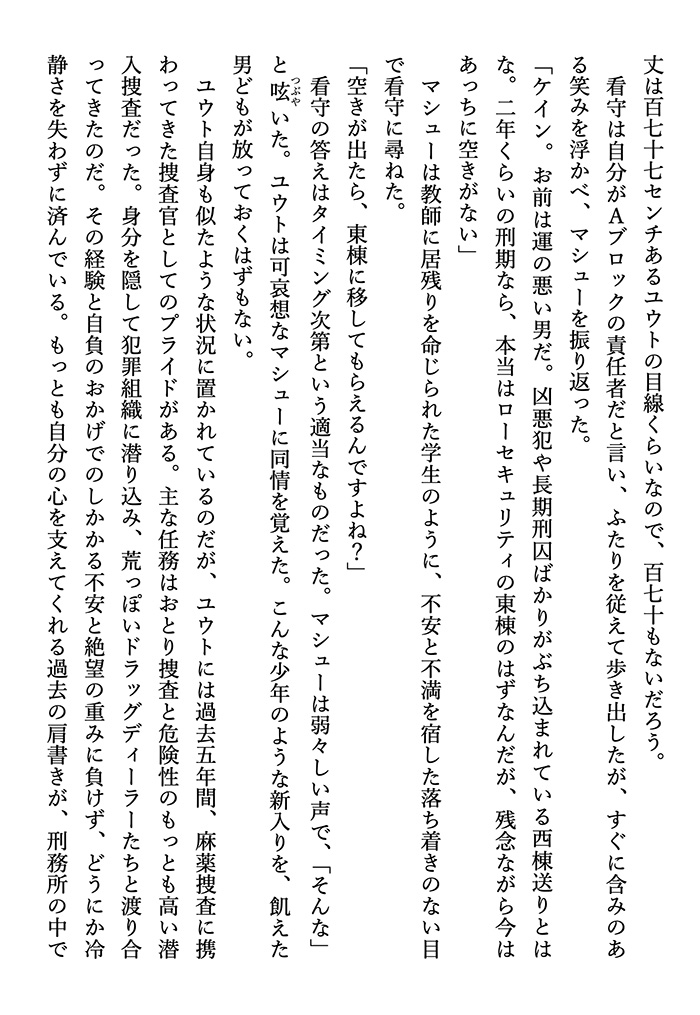 丈は百七十七センチあるユウトの目線くらいなので、百七十もないだろう。
　看守は自分がＡブロックの責任者だと言い、ふたりを従えて歩き出したが、すぐに含みのあ
る笑みを浮かべ、マシューを振り返った。
「ケイン。お前は運の悪い男だ。凶悪犯や長期刑囚ばかりがぶち込まれている西棟送りとは
な。二年くらいの刑期なら、本当はローセキュリティの東棟のはずなんだが、残念ながら今は
あっちに空きがない」
　マシューは教師に居残りを命じられた学生のように、不安と不満を宿した落ち着きのない目
で看守に尋ねた。
「空きが出たら、東棟に移してもらえるんですよね？」
　看守の答えはタイミング次第という適当なものだった。マシューは弱々しい声で、「そんな」
と呟つぶやいた。ユウトは可哀想なマシューに同情を覚えた。こんな少年のような新入りを、飢えた
男どもが放っておくはずもない。
　ユウト自身も似たような状況に置かれているのだが、ユウトには過去五年間、麻薬捜査に携
わってきた捜査官としてのプライドがある。主な任務はおとり捜査と危険性のもっとも高い潜
入捜査だった。身分を隠して犯罪組織に潜り込み、荒っぽいドラッグディーラーたちと渡り合
ってきたのだ。その経験と自負のおかげでのしかかる不安と絶望の重みに負けず、どうにか冷
静さを失わずに済んでいる。もっとも自分の心を支えてくれる過去の肩書きが、刑務所の中で